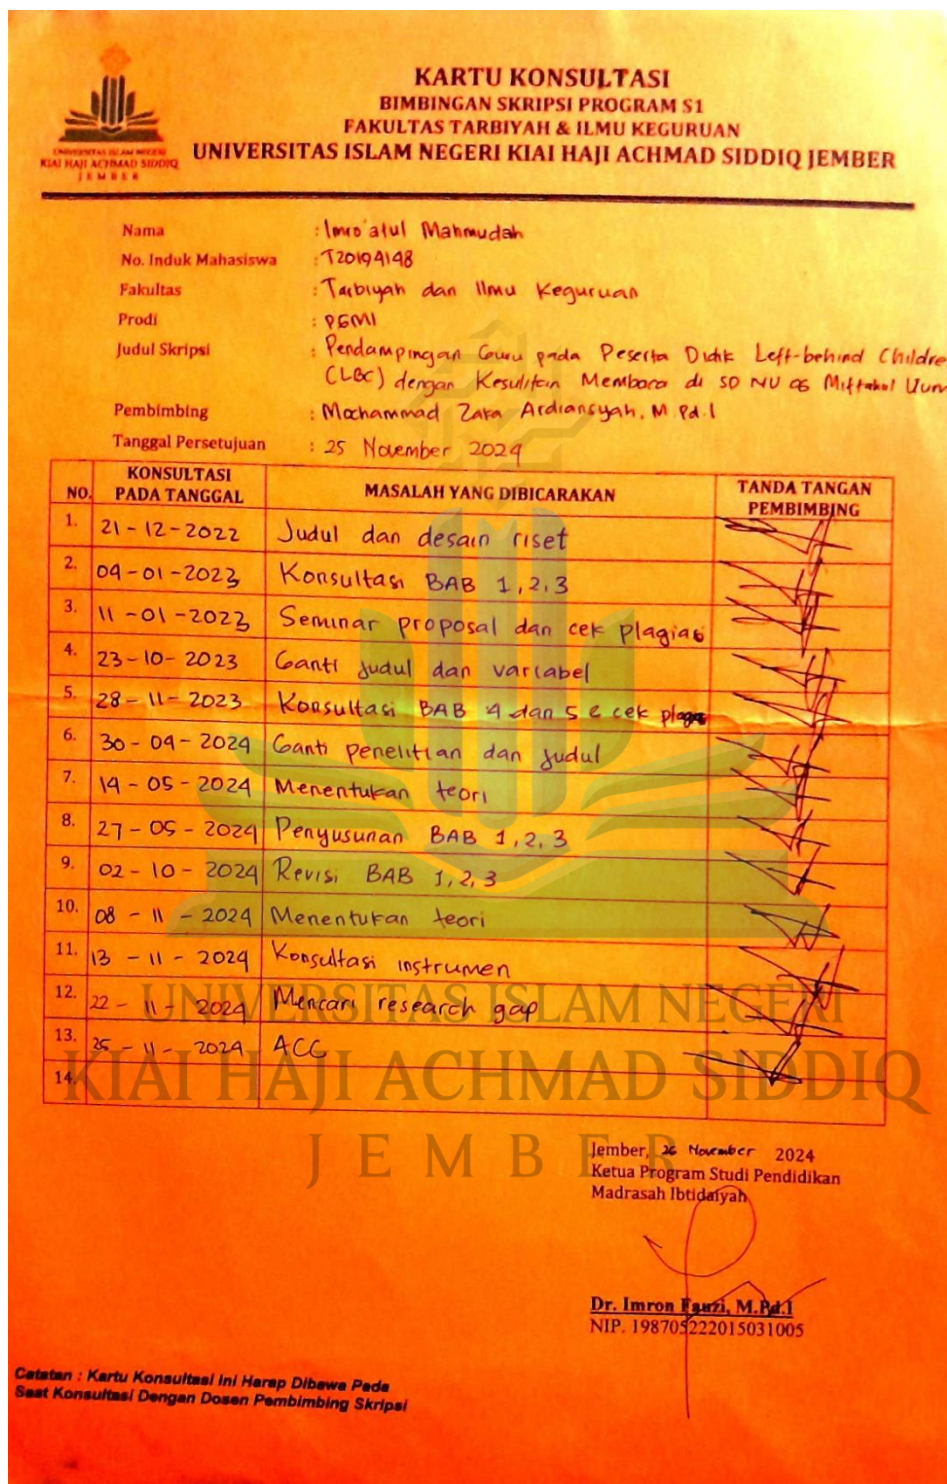 UNIVERSITAS ISLAM NEGERI
KIAI HAJI ACHMAD SIDDIQ
JEMBER
KARTU KONSULTASI
BIMBINGAN SKRIPSI PROGRAM S1
FAKULTAS TARBIYAH & ILMU KEGURUAN
UNIVERSITAS ISLAM NEGERI KIAI HAJI ACHMAD SIDDIQ JEMBER
Nama : Imro'atul Mahmudah
No. Induk Mahasiswa : T20194148
Fakultas : Tarbiyah dan Ilmu Keguruan
Prodi : PGMI
Judul Skripsi : Pendampingan Guru pada Peserta Didik Left-behind Childre
(LBC) dengan Kesulitan Membaca di SD NU 06 Miftahul Ulum
Pembimbing : Mochammad Zaka Ardiansyah, M.Pd.I
Tanggal Persetujuan : 25 November 2024
NO. KONSULTASI PADA TANGGAL MASALAH YANG DIBICARAKAN TANDA TANGAN PEMBIMBING
1. 21-12-2022 Judul dan desain riset
2. 04-01-2023 Konsultasi BAB 1,2,3
3. 11-01-2023 Seminar proposal dan cek plagiasi
4. 23-10-2023 Ganti judul dan variabel
5. 28-11-2023 Konsultasi BAB 4 dan 5 & cek
6. 30-04-2024 Ganti penelitian dan judul
7. 14-05-2024 Menentukan teori
8. 27-05-2024 Penyusunan BAB 1,2,3
9. 02-10-2024 Revisi BAB 1,2,3
10. 08-11-2024 Menentukan teori
11. 13-11-2024 Konsultasi instrumen
12. 22-11-2024 Mencari research gap
13. 25-11-2024 ACC
14.
UNIVERSITAS ISLAM NEGERI
KIAI HAJI ACHMAD SIDDIQ
JEMBER
Jember, 26 November 2024
Ketua Program Studi Pendidikan
Madrasah Ibtidaiyah
Dr. Imron Fauzi, M.Pd.I
NIP. 198705222015031005
Catatan : Kartu Konsultasi Ini Harap Dibawa Pada
Saat Konsultasi Dengan Dosen Pembimbing Skripsi